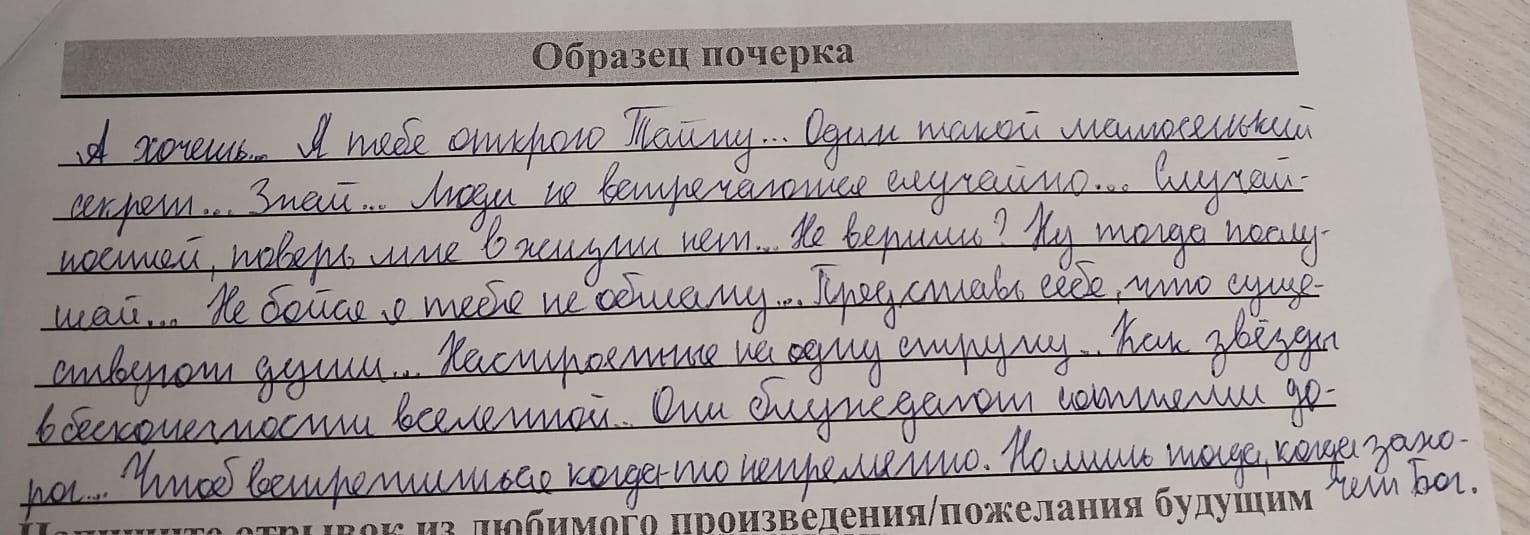 Образец почерка
А хочешь... Я тебе открою Тайну... Один такой малюсенький
секрет... Знай... Люди не встречаются случайно... Случай-
ностей, поверь мне в жизни нет... Не веришь? Ну тогда послу-
шай... Не бойся я тебе не обману... Представь себе, что суще-
ствуют души... Настроенные на одну струну... Как звёзды
в бесконечности вселенной... Они блуждают сотнями до-
рог... Чтоб встретиться когда-то непременно. Но лишь тогда, когда захо-
чет Бог.
Напишите отрывок из любимого произведения/пожелания будущим